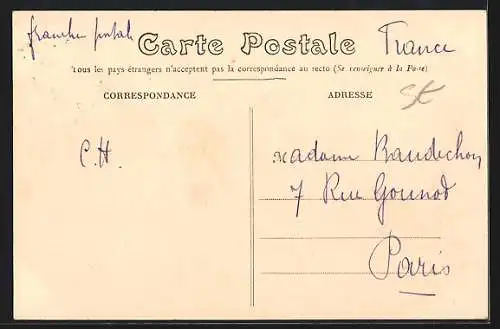 franchise postale Carte Postale France
Tous les pays étrangers n'acceptent pas la correspondance au recto (Se renseigner à la Poste)
CORRESPONDANCE ADRESSE
C.H.
Madame Baudichon
7 Rue Gounod
Paris